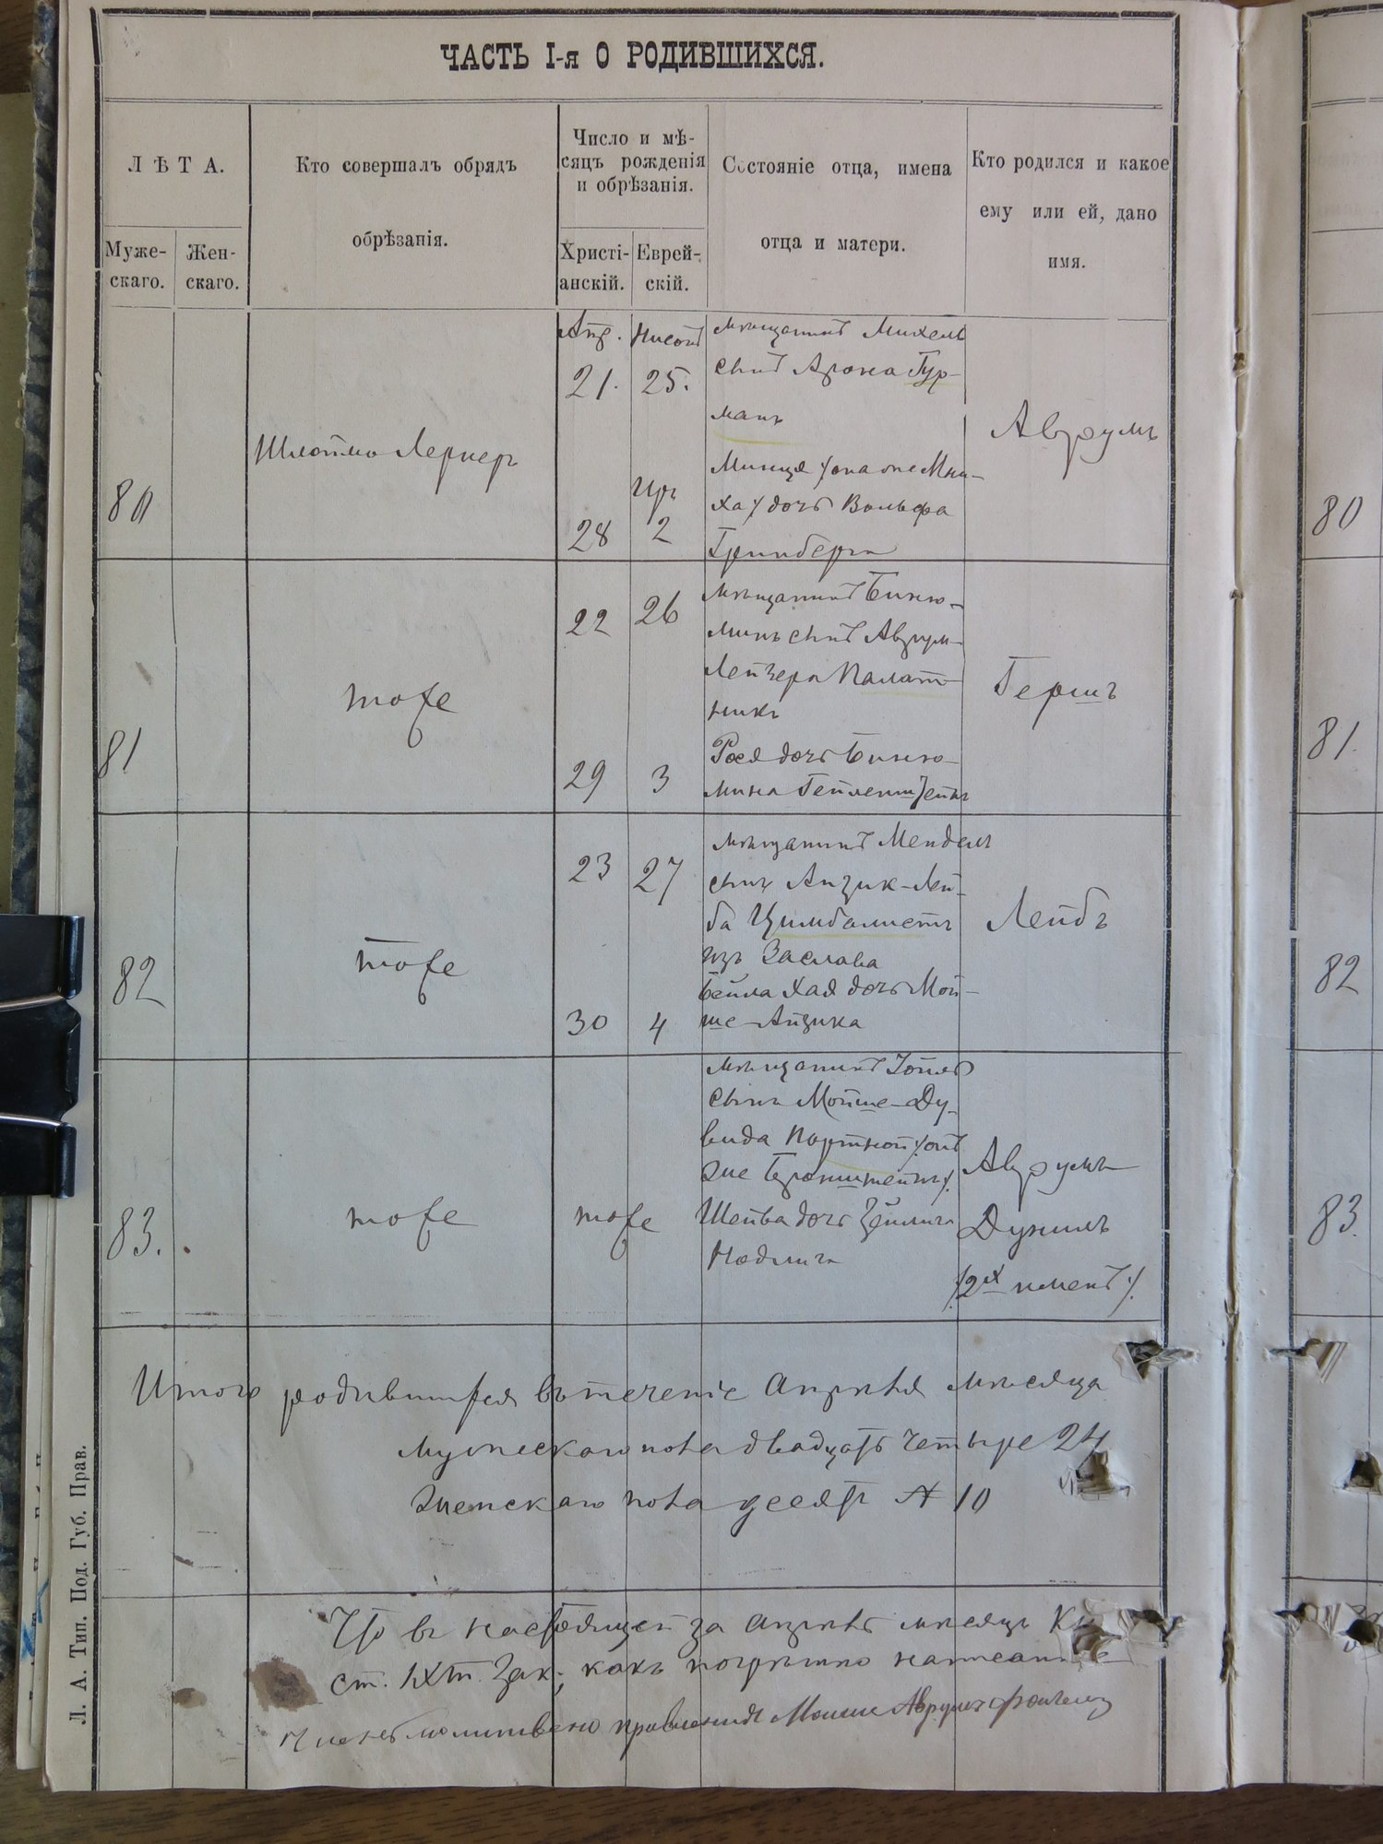 ЧАСТЬ I-я О РОДИВШИХСЯ.
ЛѢТА.
Муже-
скаго.
Жен-
скаго.
Кто совершалъ обрядъ
обрѣзанія.
Число и мѣ-
сяцъ рожденія
и обрѣзанія.
Христі-
анскій.
Еврей-
скій.
Состояніе отца, имена
отца и матери.
Кто родился и какое
ему или ей, дано
имя.
80
Шлойма Лернеръ
Апр. Нисонъ
21. 25.
Иръ
28 2
мѣщанинъ Михель
сынъ Арона Гур-
манъ
Минця /она же Мни-
ха/ дочь Вольфа
Гринберга
Аврумъ
80
81
тоже
22 26
29 3
мѣщанинъ Биню-
минъ сынъ Аврум-
Лейзера Палат-
никъ
Рося дочь Биню-
мина
Гершъ
81.
82
тоже
23 27
30 4
мѣщанинъ Мендель
сынъ Айзик-Лей-
ба Цимбалистъ
изъ Заслава
Бейла Хая дочь Мой-
ше-Айзика
Лейбъ
82
83.
тоже
тоже
мѣщанинъ
сынъ Мойше-Ду-
вида Портной /онъ
же
Шейва дочь Зейлига
Аврумъ
Дуниль
/2хъ именъ/.
83
Итого родившихся въ теченіе Апрѣля мѣсяца
мужескаго пола двадцать четыре 24
женскаго пола десять 10
Что въ настоящей за апрѣль мѣсяцъ
ст. IX т. Зак., какъ погрѣшно написанные
Членъ молитвенно правленія Мойше Аврумъ
Л. А. Тип. Под. Губ. Прав.